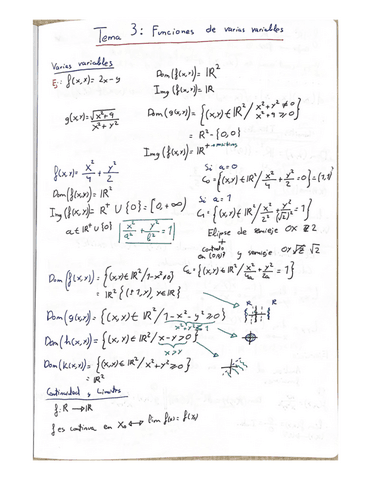 Tema 3: Funciones de varias variables
Varias variables
Ej: f(x,y) = 2x-y
Dom(f(x,y)) = IR²
Img(f(x,y)) = IR
g(x,y) = √x²+9 / x²+y²
Dom(g(x,y)) = {(x,y) ∈ IR² / x²+y² ≠ 0
x²+9 ≥ 0}
= R² - {0,0}
Img(f(x,y)) = IR⁺
f(x,y) = x²/4 + y²/2
Dom(f(x,y)) = IR²
Img(f(x,y)) = R⁺ ∪ {0} = [0,+∞)
a ∈ R⁺ ∪ {0} | x²/a² + y²/b² = 1 |
Si a=0
C₀ = {(x,y) ∈ IR² / x²/4 + y²/2 = 0} =
Si a=1
C₁ = {(x,y) ∈ IR² / x²/2² + y²/(√2)² = 1}
Elipse de semieje OX 2
+
centrada
en (0,0) y semieje OY √2
= {(x,y) ∈ IR² / x²/4a + y²/2a = 1}
Dom(f(x,y)) = {(x,y) ∈ IR² / 1-x² ≠ 0}
= IR² \ {(±1,y), y ∈ IR}
Dom(g(x,y)) = {(x,y) ∈ IR² / 1-x²-y² ≥ 0}
x²+y² ≤ 1
R R
Dom(h(x,y)) = {(x,y) ∈ IR² / x-y ≥ 0}
x ≥ y
Dom(k(x,y)) = {(x,y) ∈ IR² / x²+y² ≥ 0}
= IR²
Continuidad y Límites
f: R → IR
f es continua en X₀ ↔ lim f(x) = f(x₀)